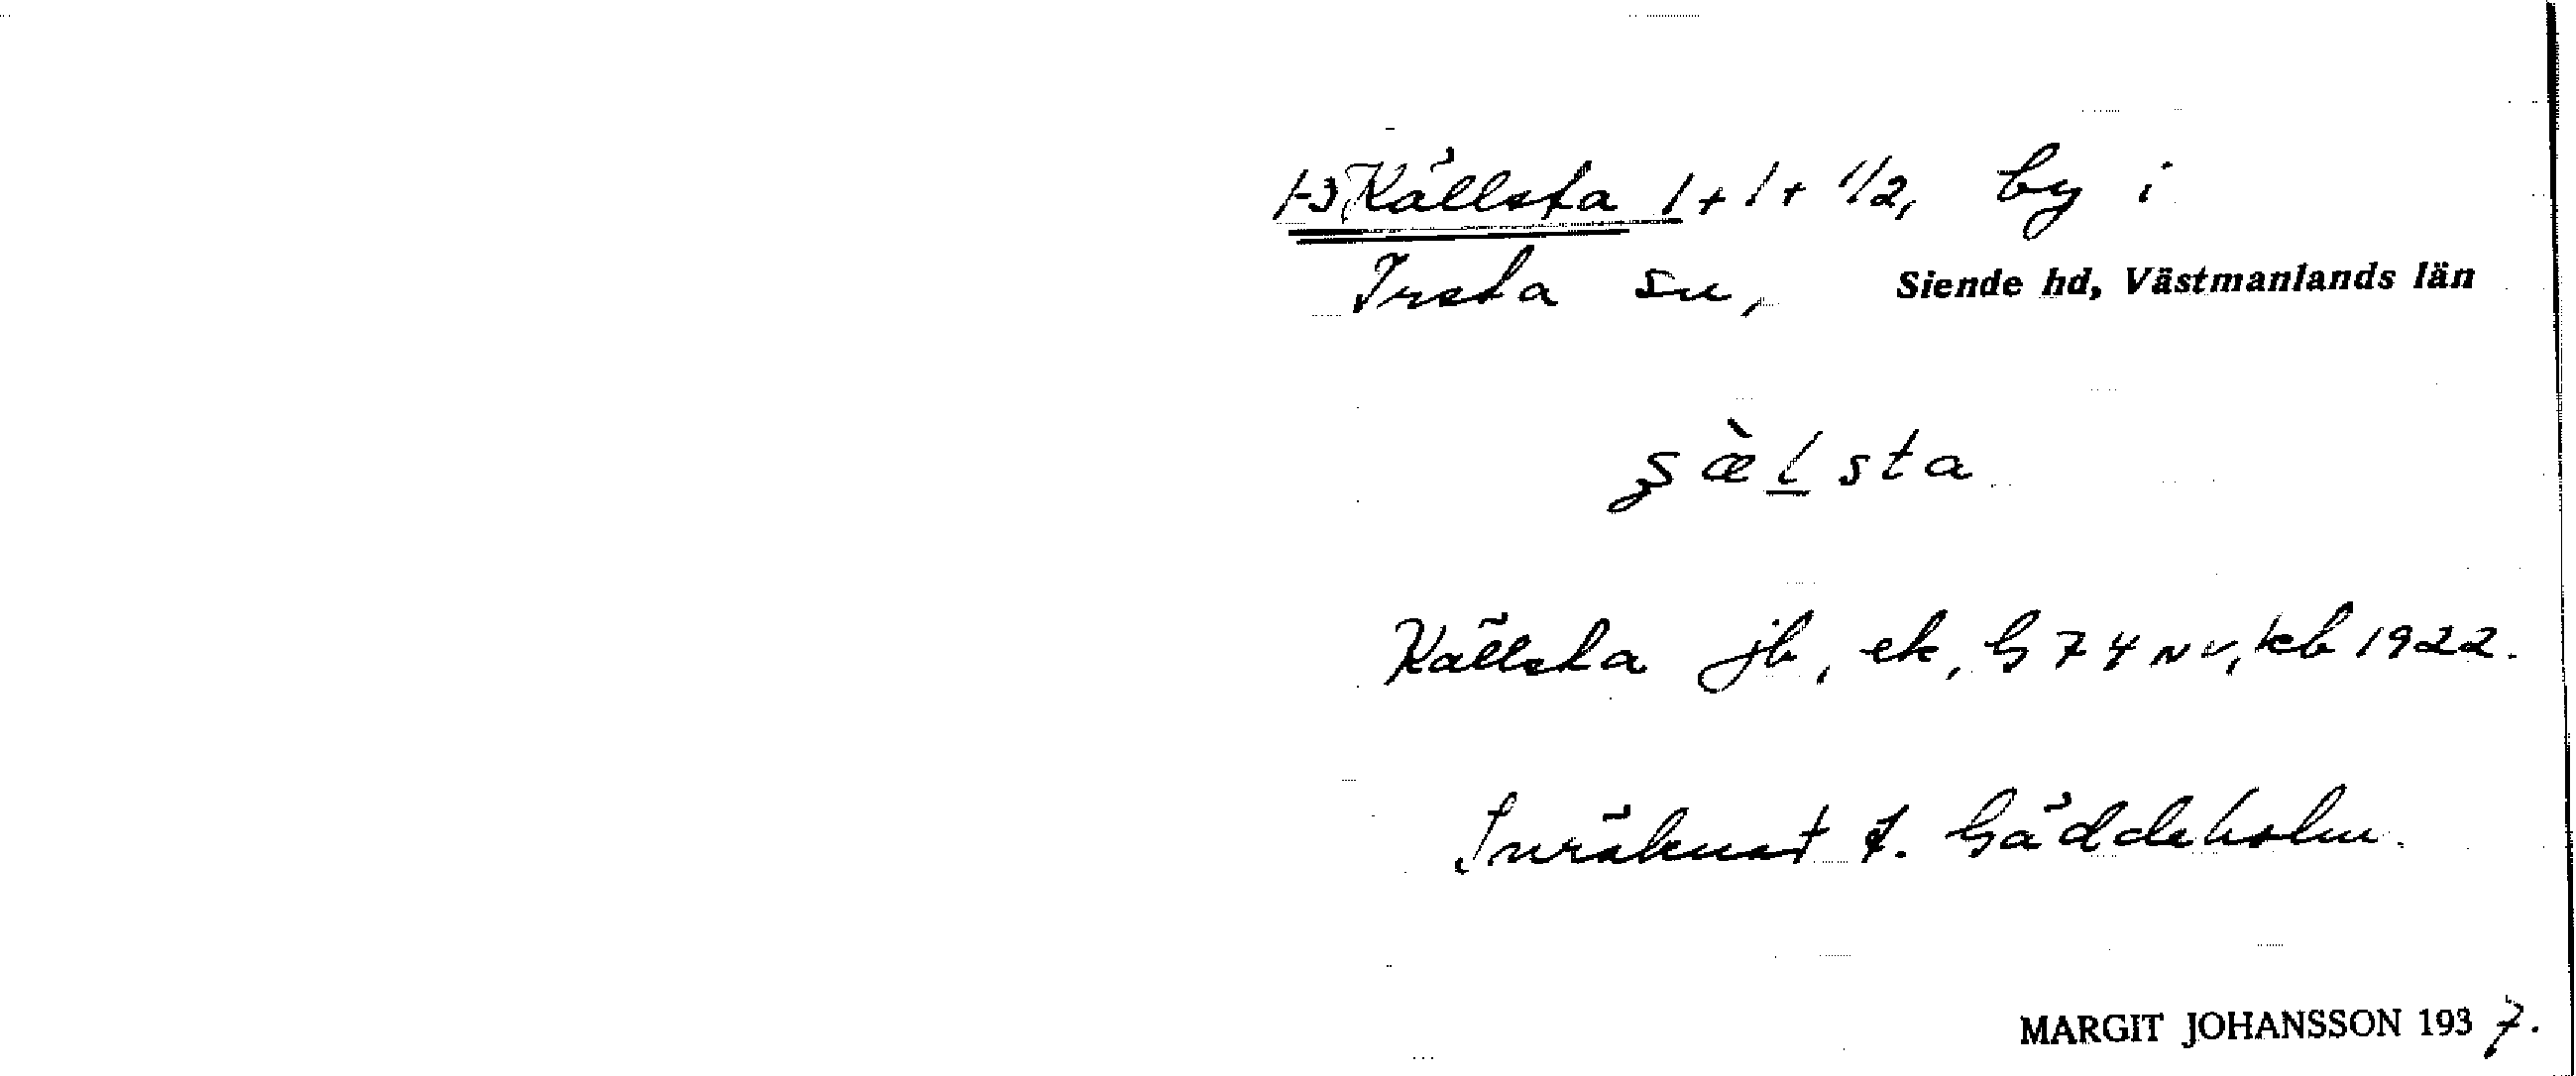 1-3 Källsta 1 + 1 + 1/2, by i
Irsta sn, Siende hd, Västmanlands län
ʂæ̀l̲sta
Källsta jb, ek, G 74 nv, kb 1922.
Inräknat f. Gäddeholm.
MARGIT JOHANSSON 1937.